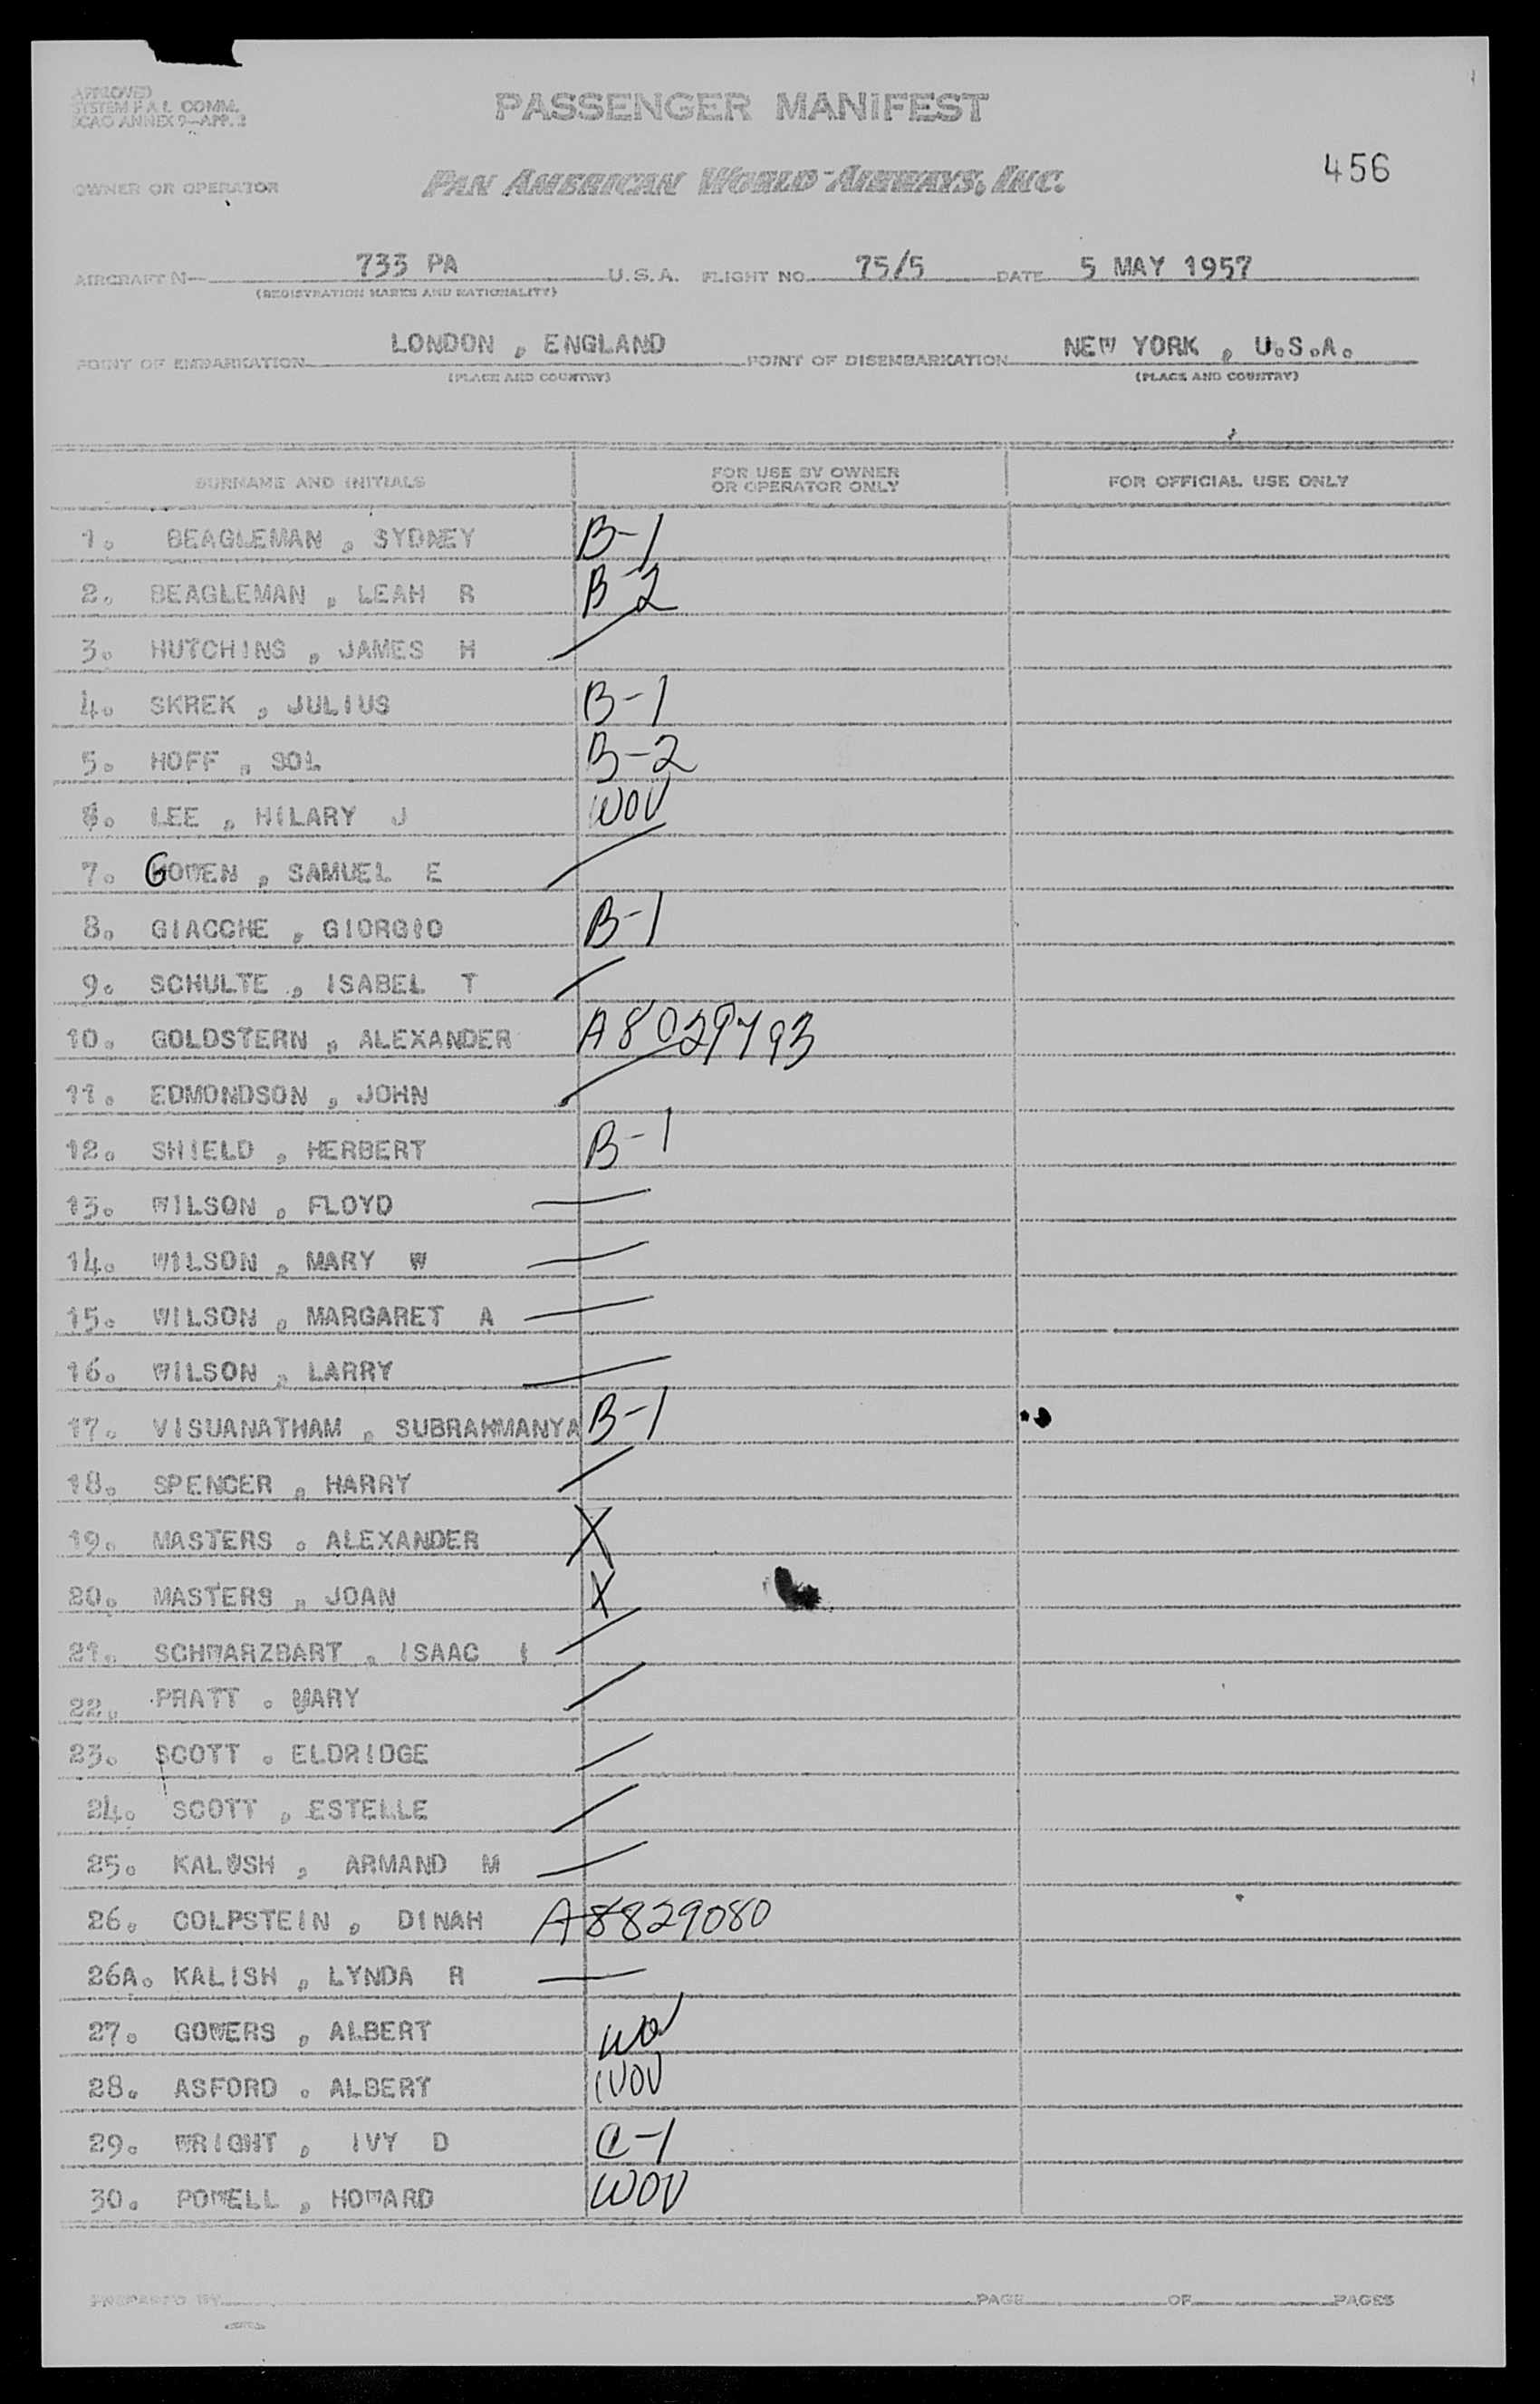 APPROVED
SYSTEM F.A.L. COMM.
ICAO ANNEX 9—APP. 2
PASSENGER MANIFEST
456
OWNER OR OPERATOR PAN AMERICAN WORLD AIRWAYS, INC.
AIRCRAFT N— 733 PA U.S.A. FLIGHT NO. 75/5 DATE 5 MAY 1957
(REGISTRATION MARKS AND NATIONALITY)
POINT OF EMBARKATION LONDON , ENGLAND POINT OF DISEMBARKATION NEW YORK , U.S.A.
(PLACE AND COUNTRY) (PLACE AND COUNTRY)
SURNAME AND INITIALS FOR USE BY OWNER OR OPERATOR ONLY FOR OFFICIAL USE ONLY
1. BEAGLEMAN , SYDNEY B-1
2. BEAGLEMAN , LEAH R B-2
3. HUTCHINS , JAMES H
4. SKREK , JULIUS B-1
5. HOFF , SOL B-2
6. LEE , HILARY J WOV
7. GOWEN , SAMUEL E
8. GIACCHE , GIORGIO B-1
9. SCHULTE , ISABEL T
10. GOLDSTERN , ALEXANDER
11. EDMONDSON , JOHN
12. SHIELD , HERBERT B-1
13. WILSON , FLOYD
14. WILSON , MARY W
15. WILSON , MARGARET A
16. WILSON , LARRY
17. VISUANATHAM , SUBRAHMANYA B-1
18. SPENCER , HARRY
19. MASTERS . ALEXANDER X
20. MASTERS , JOAN X
21. SCHWARZBART , ISAAC I
22. PRATT . MARY
23. SCOTT . ELDRIDGE
24. SCOTT , ESTELLE
25. , ARMAND M
26. GOLPSTEIN , DINAH A8829080
26A. KALISH , LYNDA R
27. GOWERS , ALBERT
28. ASFORD . ALBERT WOV
29. WRIGHT , IVY D C-1
30. POWELL , HOWARD WOV
PREPARED BY PAGE OF PAGES